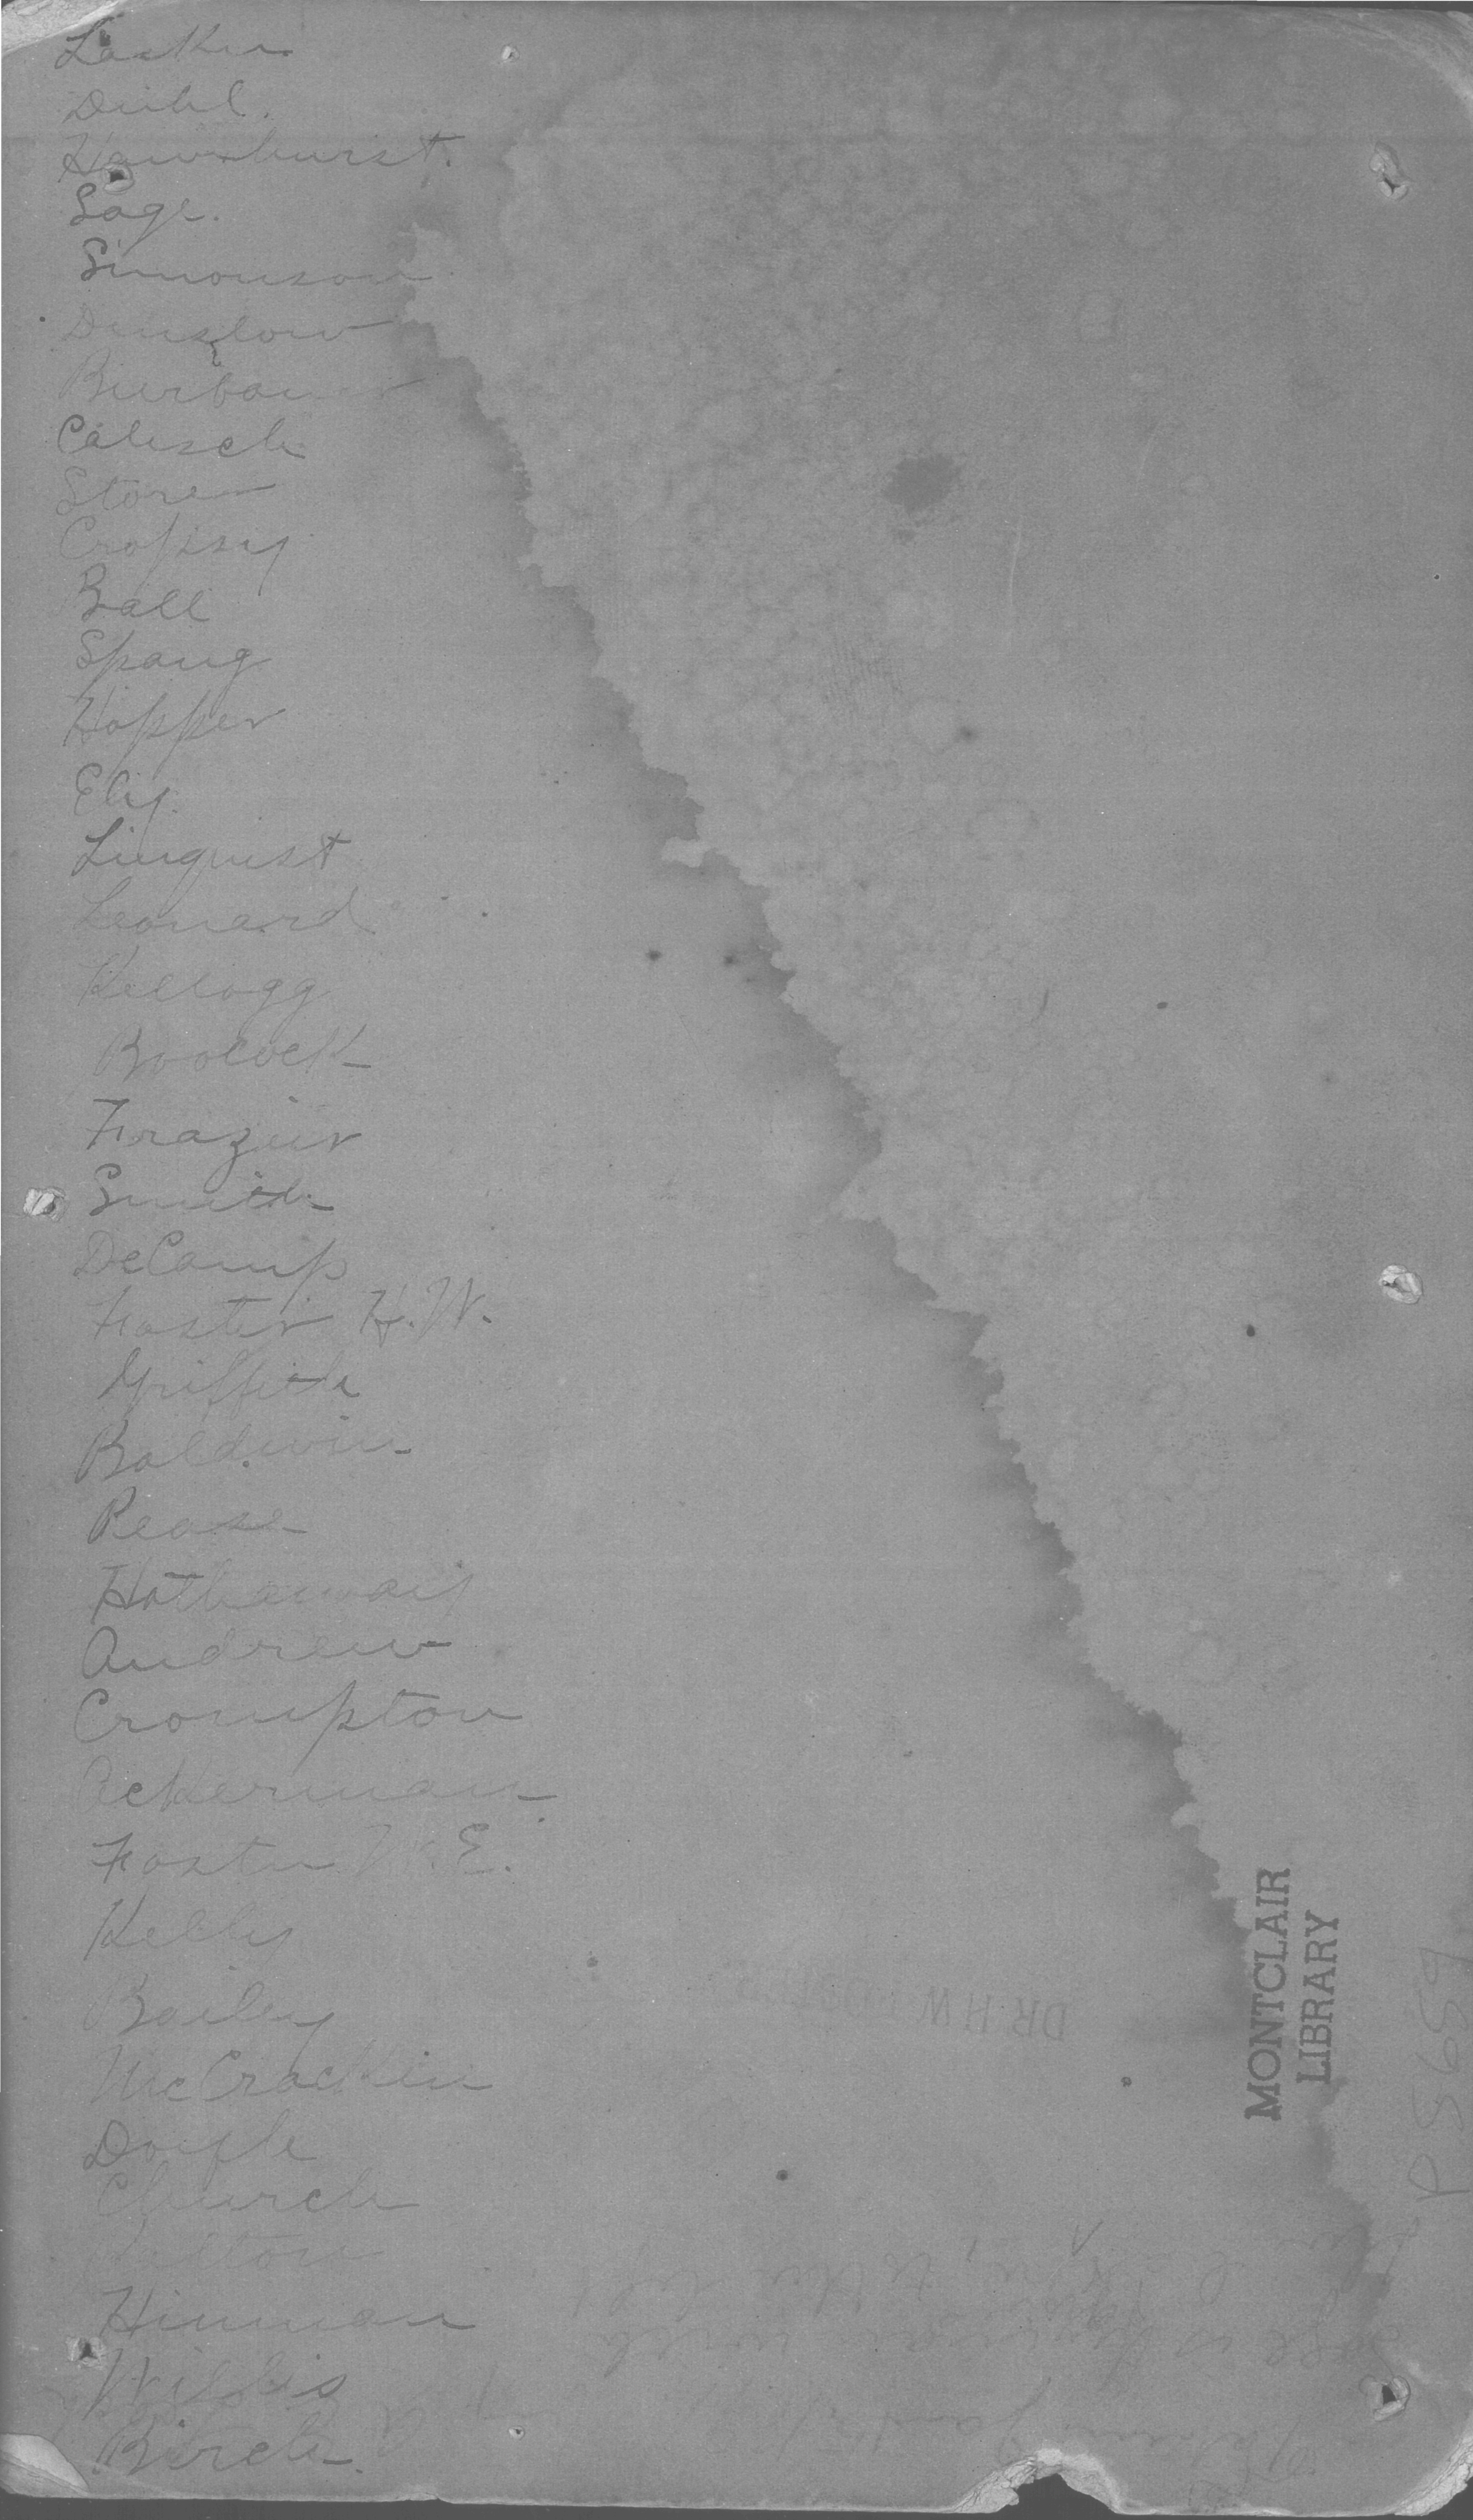 Larkin
Diehl.
Hawxhurst.
Sage.
Simonson
Denslow
Calisch
Store
Cropsey
Ball
Spang
Hopper
Ely.
Linquist
Leonard
Kellogg
Boocock
Frazier
Smith
DeCamp
Foster H.W.
Griffith
Baldwin
Pease
Hathaway
Andrew
Crompton
Ackerman
Foster W.E.
Kelly
Bailey
McCracken
Doyle
Church
Hinman
Willis
Birch.
DR. H W FOSTER
MONTCLAIR
LIBRARY